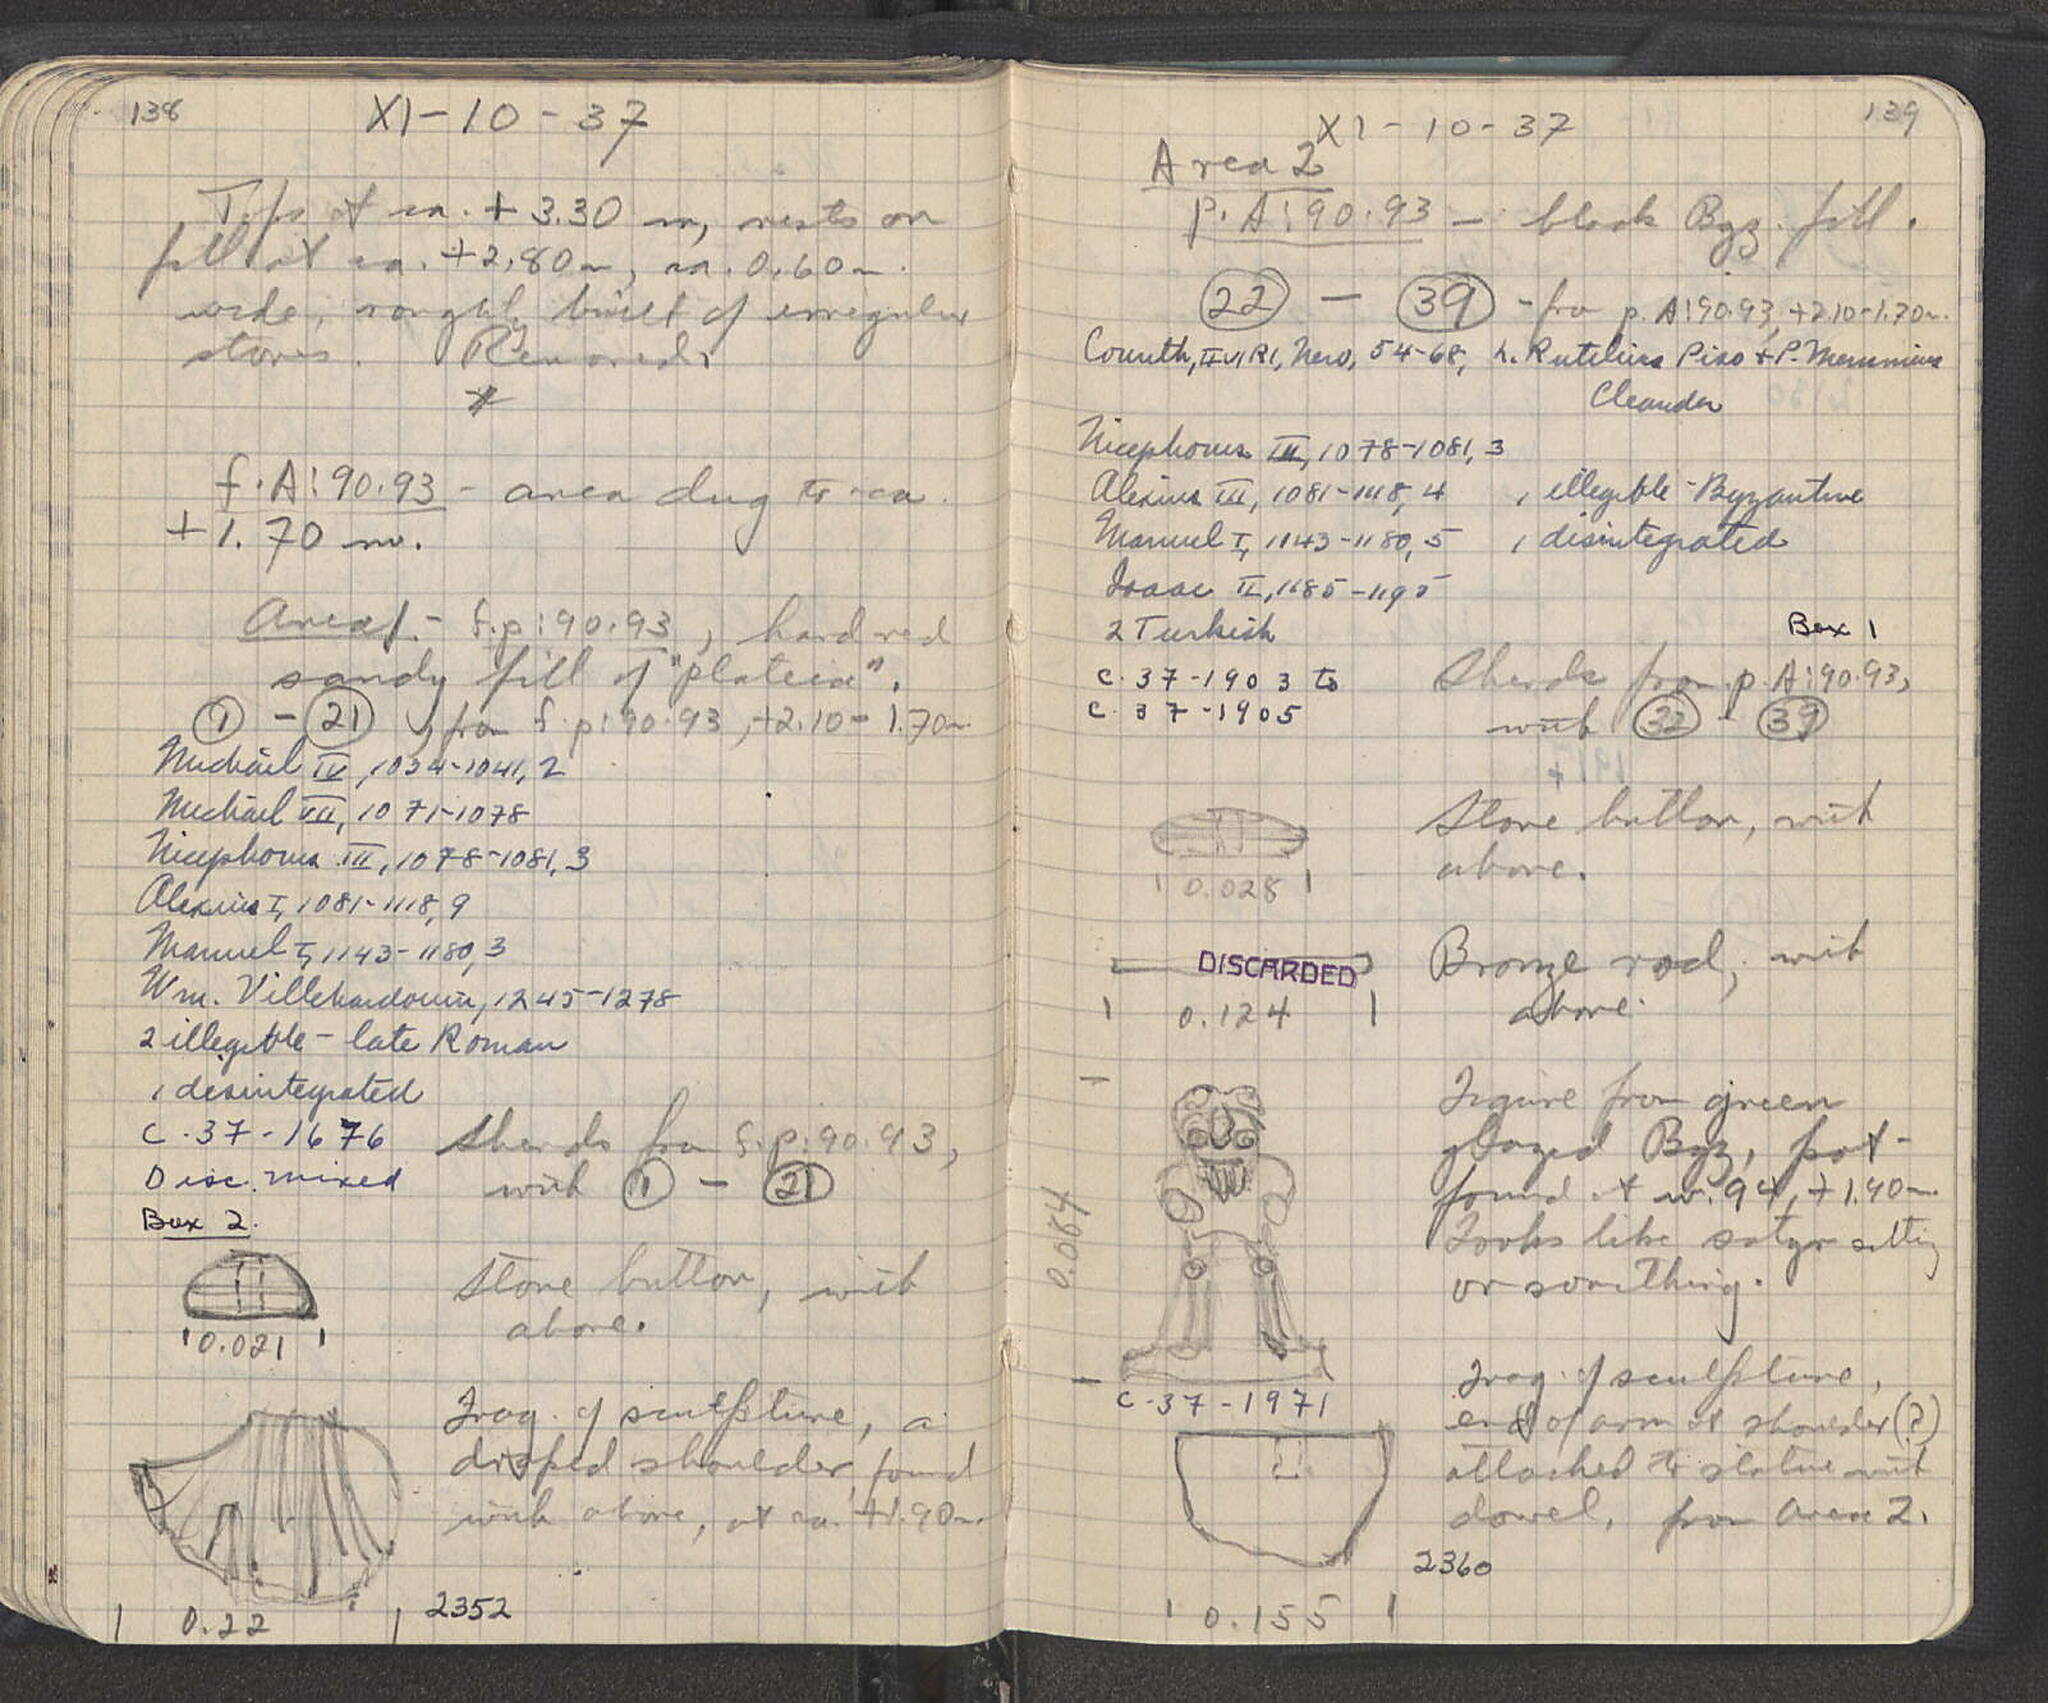 138
XI-10-37
Tops at ca. + 3.30 m, rests on
fill at ca. +2.80m, ca. 0.60m.
wide, roughly built of irregular
stones. Removed.
*
f.A:90.93 - area dug to ca.
+1.70 m.
Area 1. - f.p:90.93, hard red
sandy fill of "plateia".
① - ㉑, from f.p:90.93, +2.10 - 1.70m
Michäel IV, 1034-1041, 2
Michäel VII, 1071-1078
Nicephorus III, 1078-1081, 3
Alexius I, 1081-1118, 9
Manuel I, 1143-1180, 3
Wm. Villehardouin, 1245-1278
2 illegible - late Roman
1 disintegrated
C.37-1676
Disc. mixed
Box 2.
Sherds from f.p:90.93,
with ① - ㉑
0.021
Stone button, with
above.
Frag. of sculpture, a
draped shoulder, found
with above, at ca. +1.90m.
0.22
2352
139
XI-10-37
Area 2
p.A:90.93 - black Byz. fill.
㉒ - ㊴ - from p.A:90.93, +2.10-1.70m.
Corinth, IIVIRI, Nero, 54-68, L. Rutelius Piso + P. Memmius
Cleander
Nicephorus III, 1078-1081, 3
Alexius III, 1081-1118, 4
1 illegible - Byzantine
Manuel I, 1143-1180, 5
1 disintegrated
Isaac II, 1185-1195
2 Turkish
Box 1
C.37-1903 to
C.37-1905
Sherds from p.A:90.93,
with ㉜ - ㊴
0.028
Stone button, with
above.
DISCARDED
0.124
Bronze rod, with
above.
0.084
C-37-1971
Figure from green
glazed Byz. pot -
found at w.94, +1.90m.
Looks like satyr sitting
or something.
Frag. of sculpture,
end of arm at shoulder(?)
attached to statue with
dowel, from Area 2.
2360
0.155